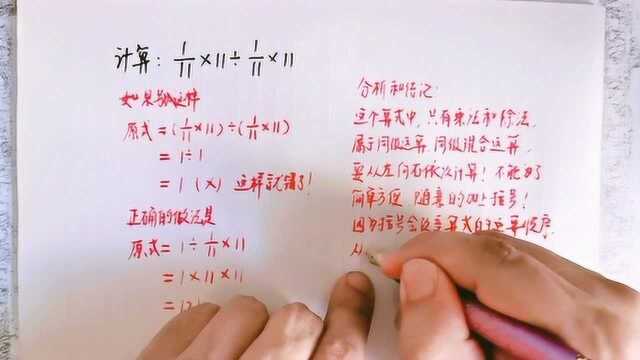 计算: 1/11 × 11 ÷ 1/11 × 11
如果
这样
原式 = (1/11 × 11) ÷ (1/11 × 11)
= 1 ÷ 1
= 1 (×) 这样就错了!
正确的做法是
原式 = 1 ÷ 1/11 × 11
= 1 × 11 × 11
分析和
记:
这个算式中,只有乘法和除法,
属于同级运算,同级混合运算,
要从左向右依次计算!不能为了
简单方便,随意的加上括号!
因为括号会改变算式的运算顺序.